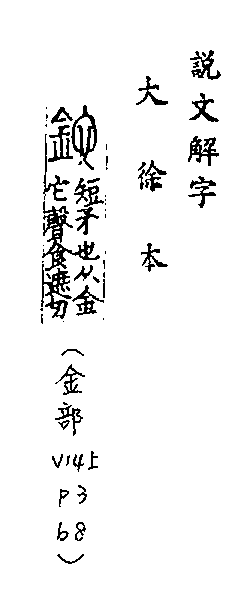 說文解字
大徐本
鉈 短矛也从金
它聲食遮切
(金部
V14上
P3
b8)